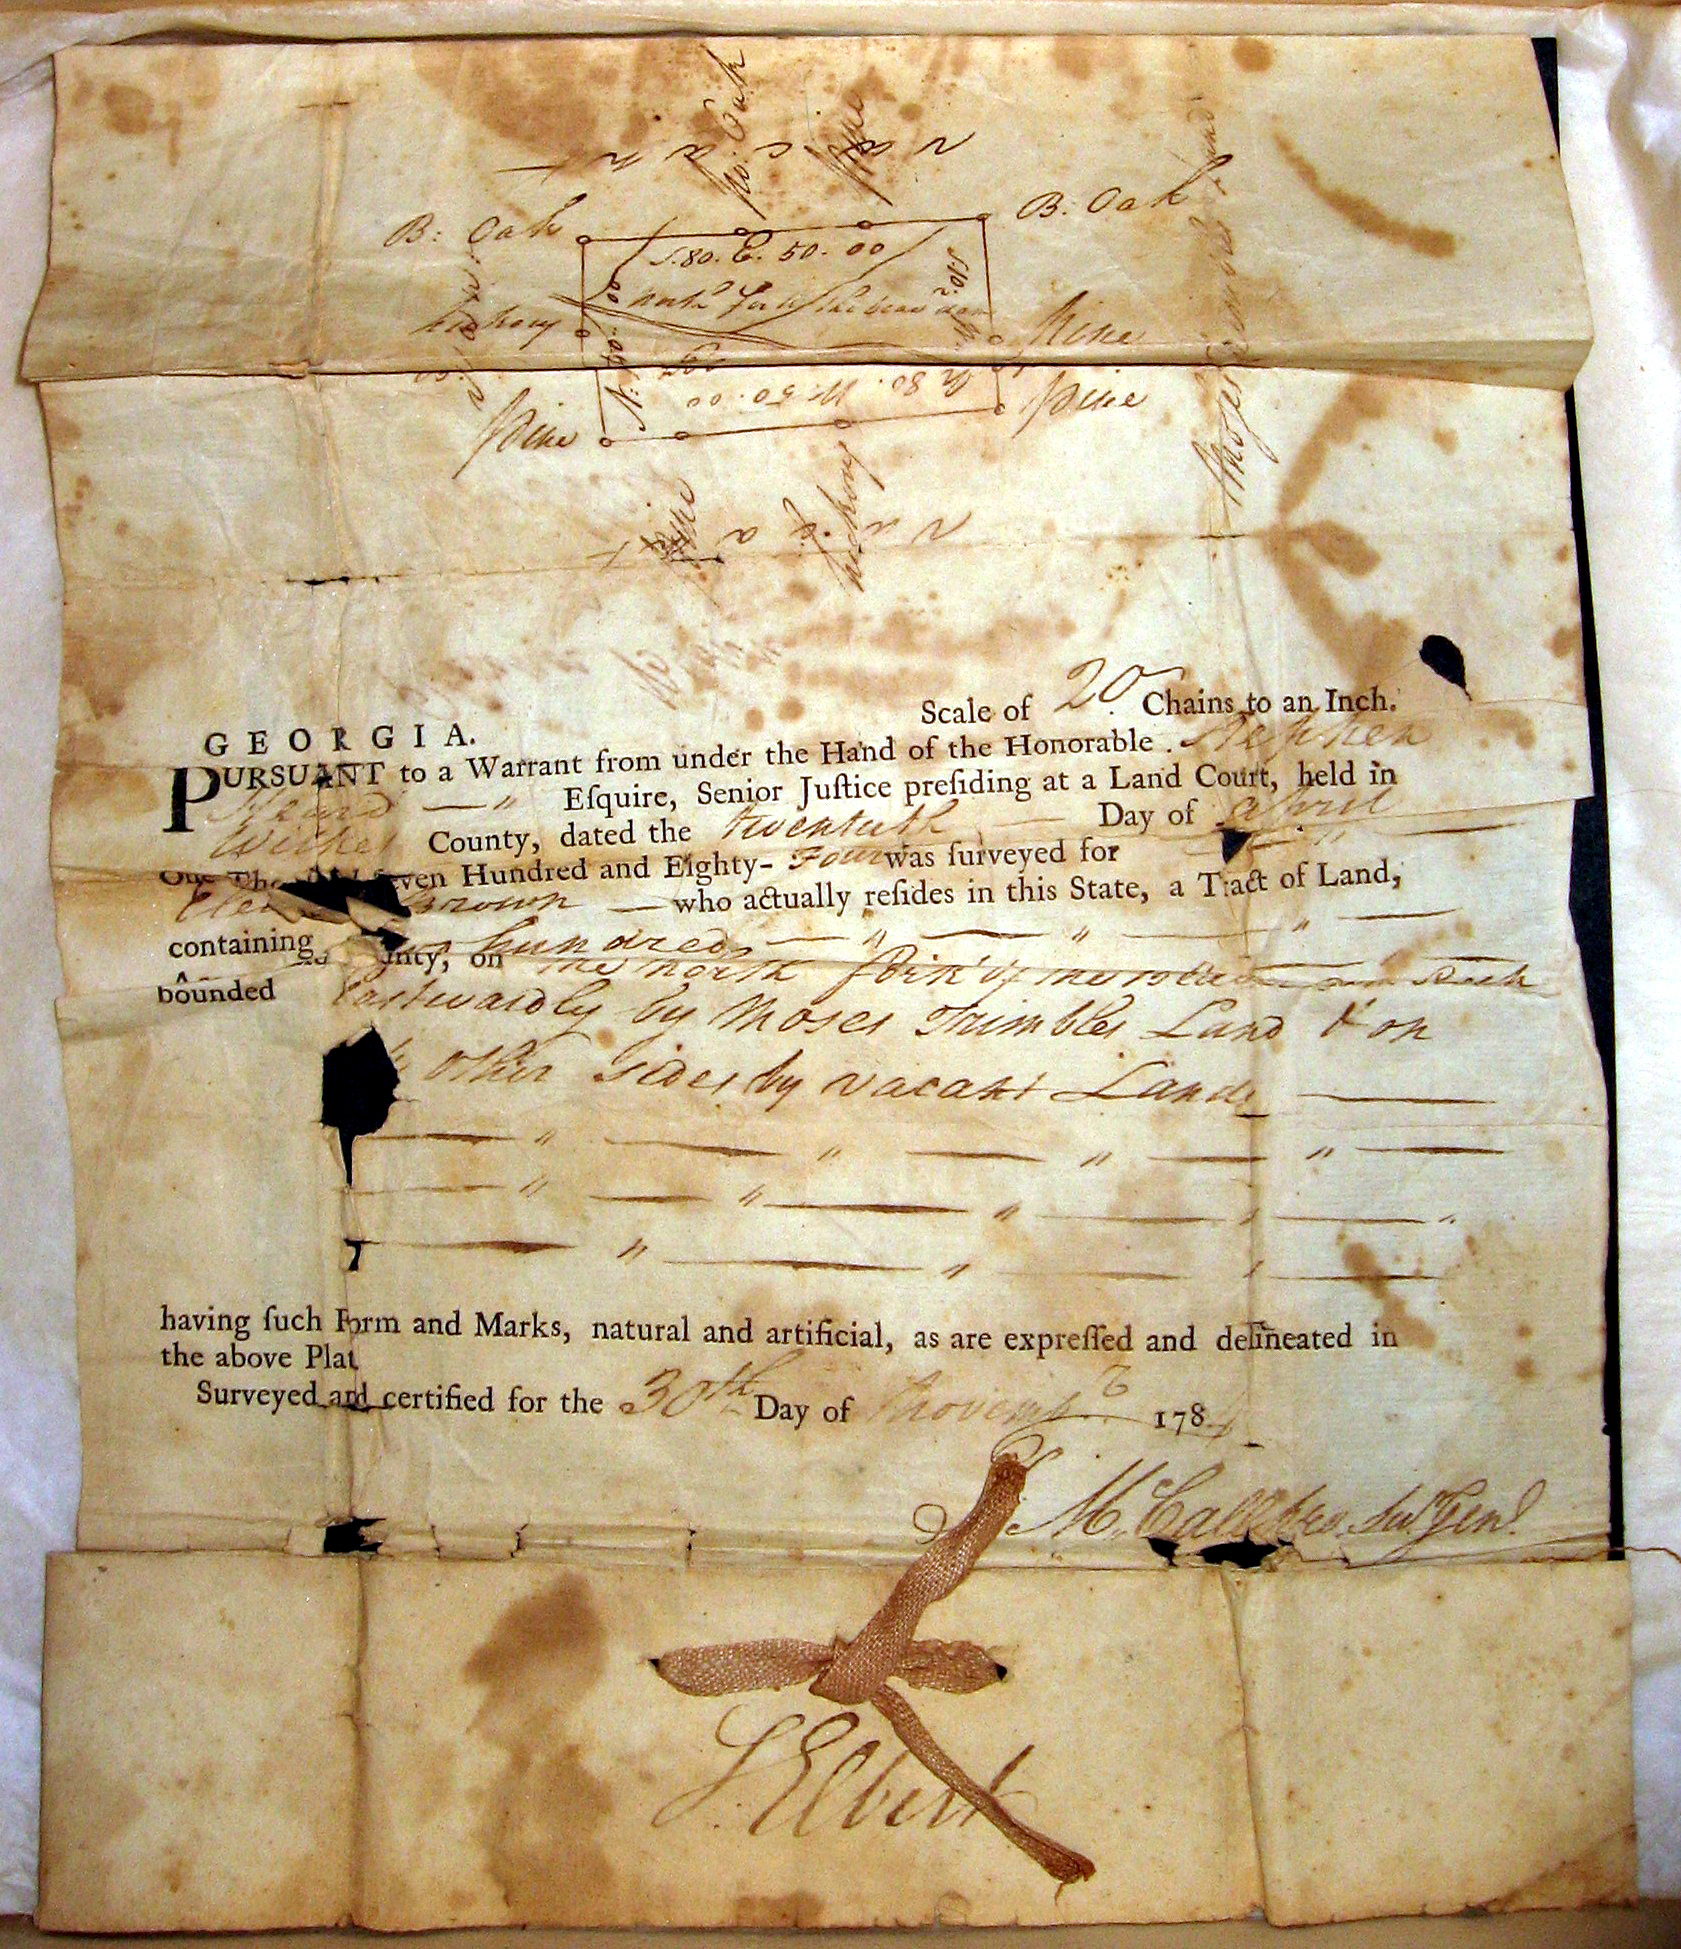 vacant
W. Oak
Pine
B: Oak
B. Oak
S. 80. E. 50. 00
north fork
hickory
Pine
N. 80. W. 50. 00
Pine
Pine
Moses Trimbles Land
vacant
Pine
hickory
Scale of 20 Chains to an Inch.
GEORGIA.
PURSUANT to a Warrant from under the Hand of the Honorable Stephen
Heard Eſquire, Senior Juſtice preſiding at a Land Court, held in
Wilkes County, dated the twentieth Day of April
One Seven Hundred and Eighty-Four was ſurveyed for
Brown who actually reſides in this State, a Tract of Land,
containing hundred
on the north Fork of the
bounded Eastwardly by Moses Trimbles Land & on
other Sides by vacant Land
having ſuch Form and Marks, natural and artificial, as are expreſſed and delineated in
the above Plat
Surveyed and certified for the 30th Day of Novemb.r 178
S Elbert